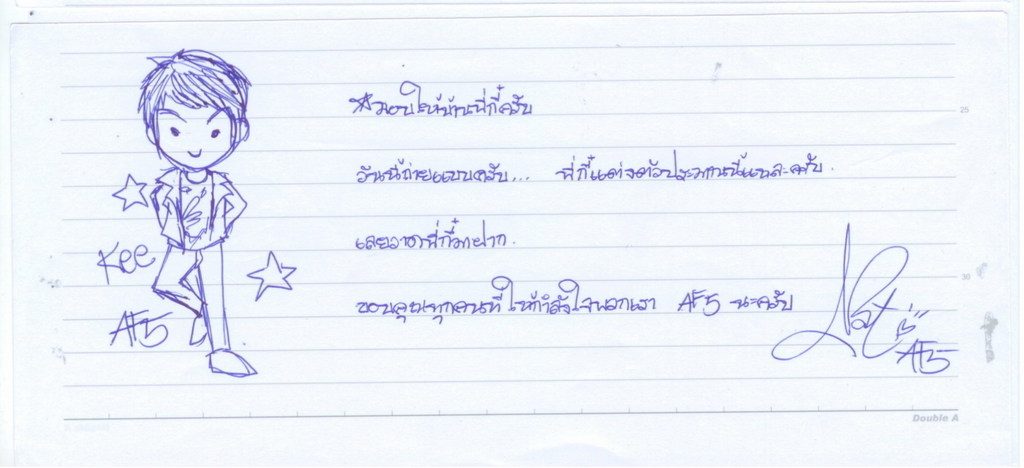 มอบให้บ้านพี่กี้ครับ
วันนี้ถ่ายแบบครับ... พี่กี้แต่งตัวประมาณนี้แหละครับ.
เลยวาดพี่กี้มาฝาก.
ขอบคุณทุกคนที่ให้กำลังใจพวกเรา AF5 นะครับ
Kee
AF5
Nat
AF5
25
Double A